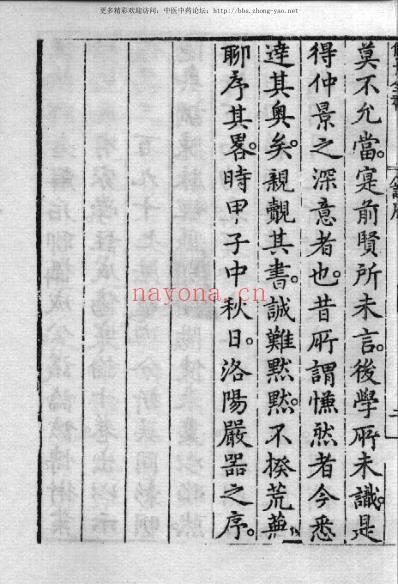 更多精彩欢迎访问：中医中药论坛：http://bbs.zhong-yao.net
莫不允當寔前賢所未言後學所未識是
得仲景之深意者也昔所謂慊然者今悉
達其奧矣親覿其書誠難默默不揆荒蕪
聊序其畧時甲子中秋日洛陽嚴器之序
nayona.cn